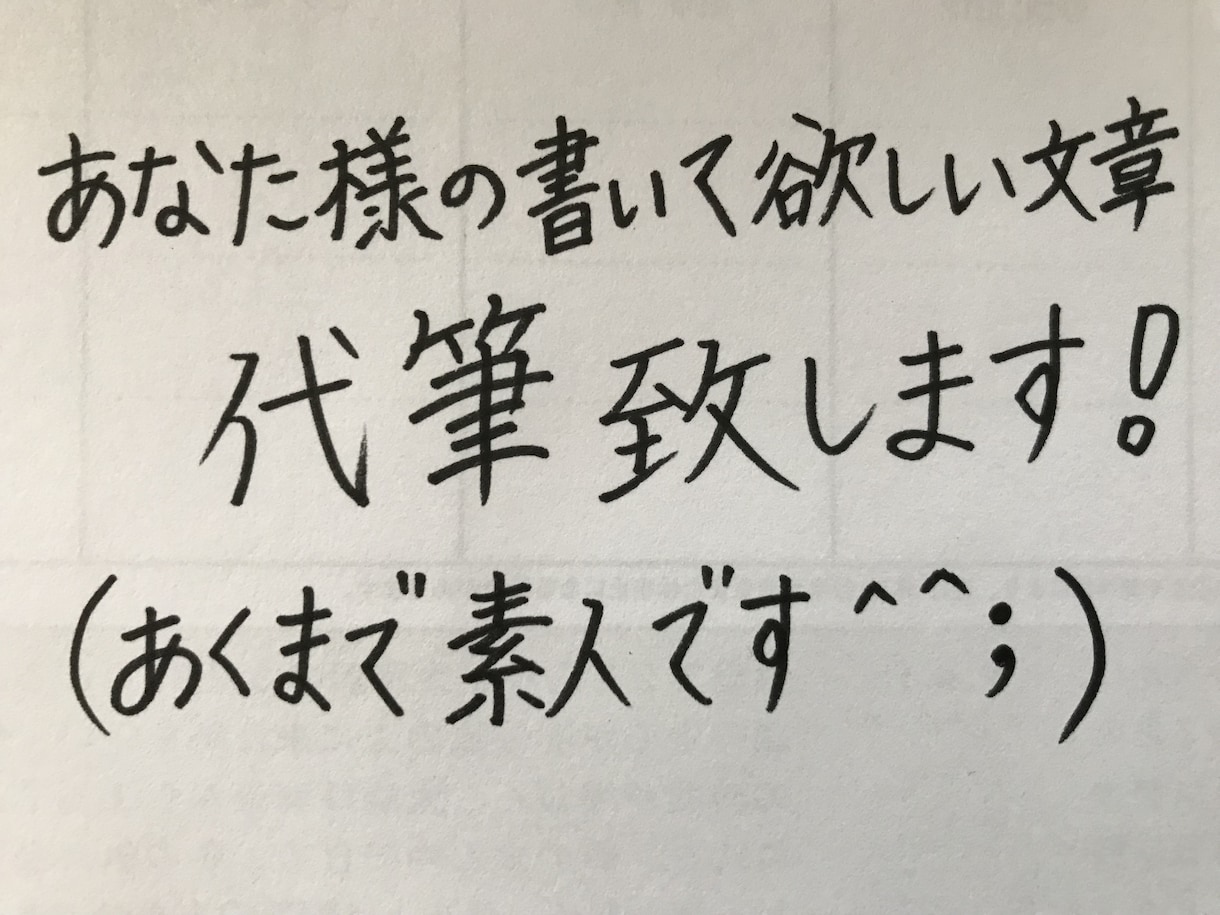 あなた様の書いて欲しい文章
代筆致します!
(あくまで素人です^^;)